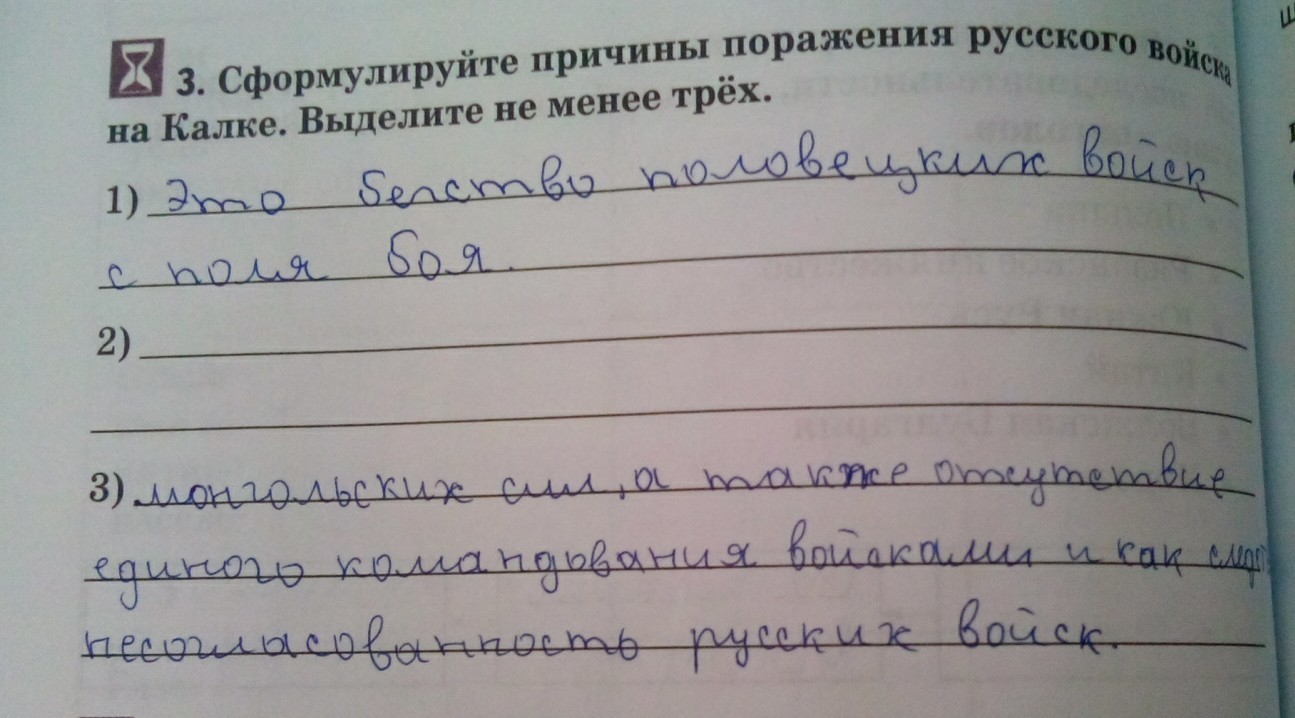 3. Сформулируйте причины поражения русского войска
на Калке. Выделите не менее трёх.
1) Это бегство половецких войск
с поля боя.
2)
3) монгольских сил, а также отсутствие
единого командования войсками и как след
несогласованность русских войск.